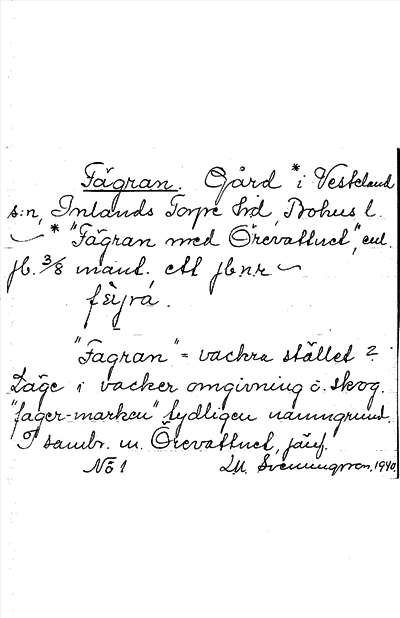 Fägran. Gård * i Vesterland
s:n, Inlands Torpe hd, Bohus l.
* "Fägran med Örevattnet", enl.
jb. 3/8 mant. ett jb.nr
"Fagran" = vackra stället?
Läge i vacker omgivning o. skog.
"fager-marken" tydligen namngrund.
I samb. m. Örevattnet, jämf.
No 1 Lll. Svenningsson. 1940.